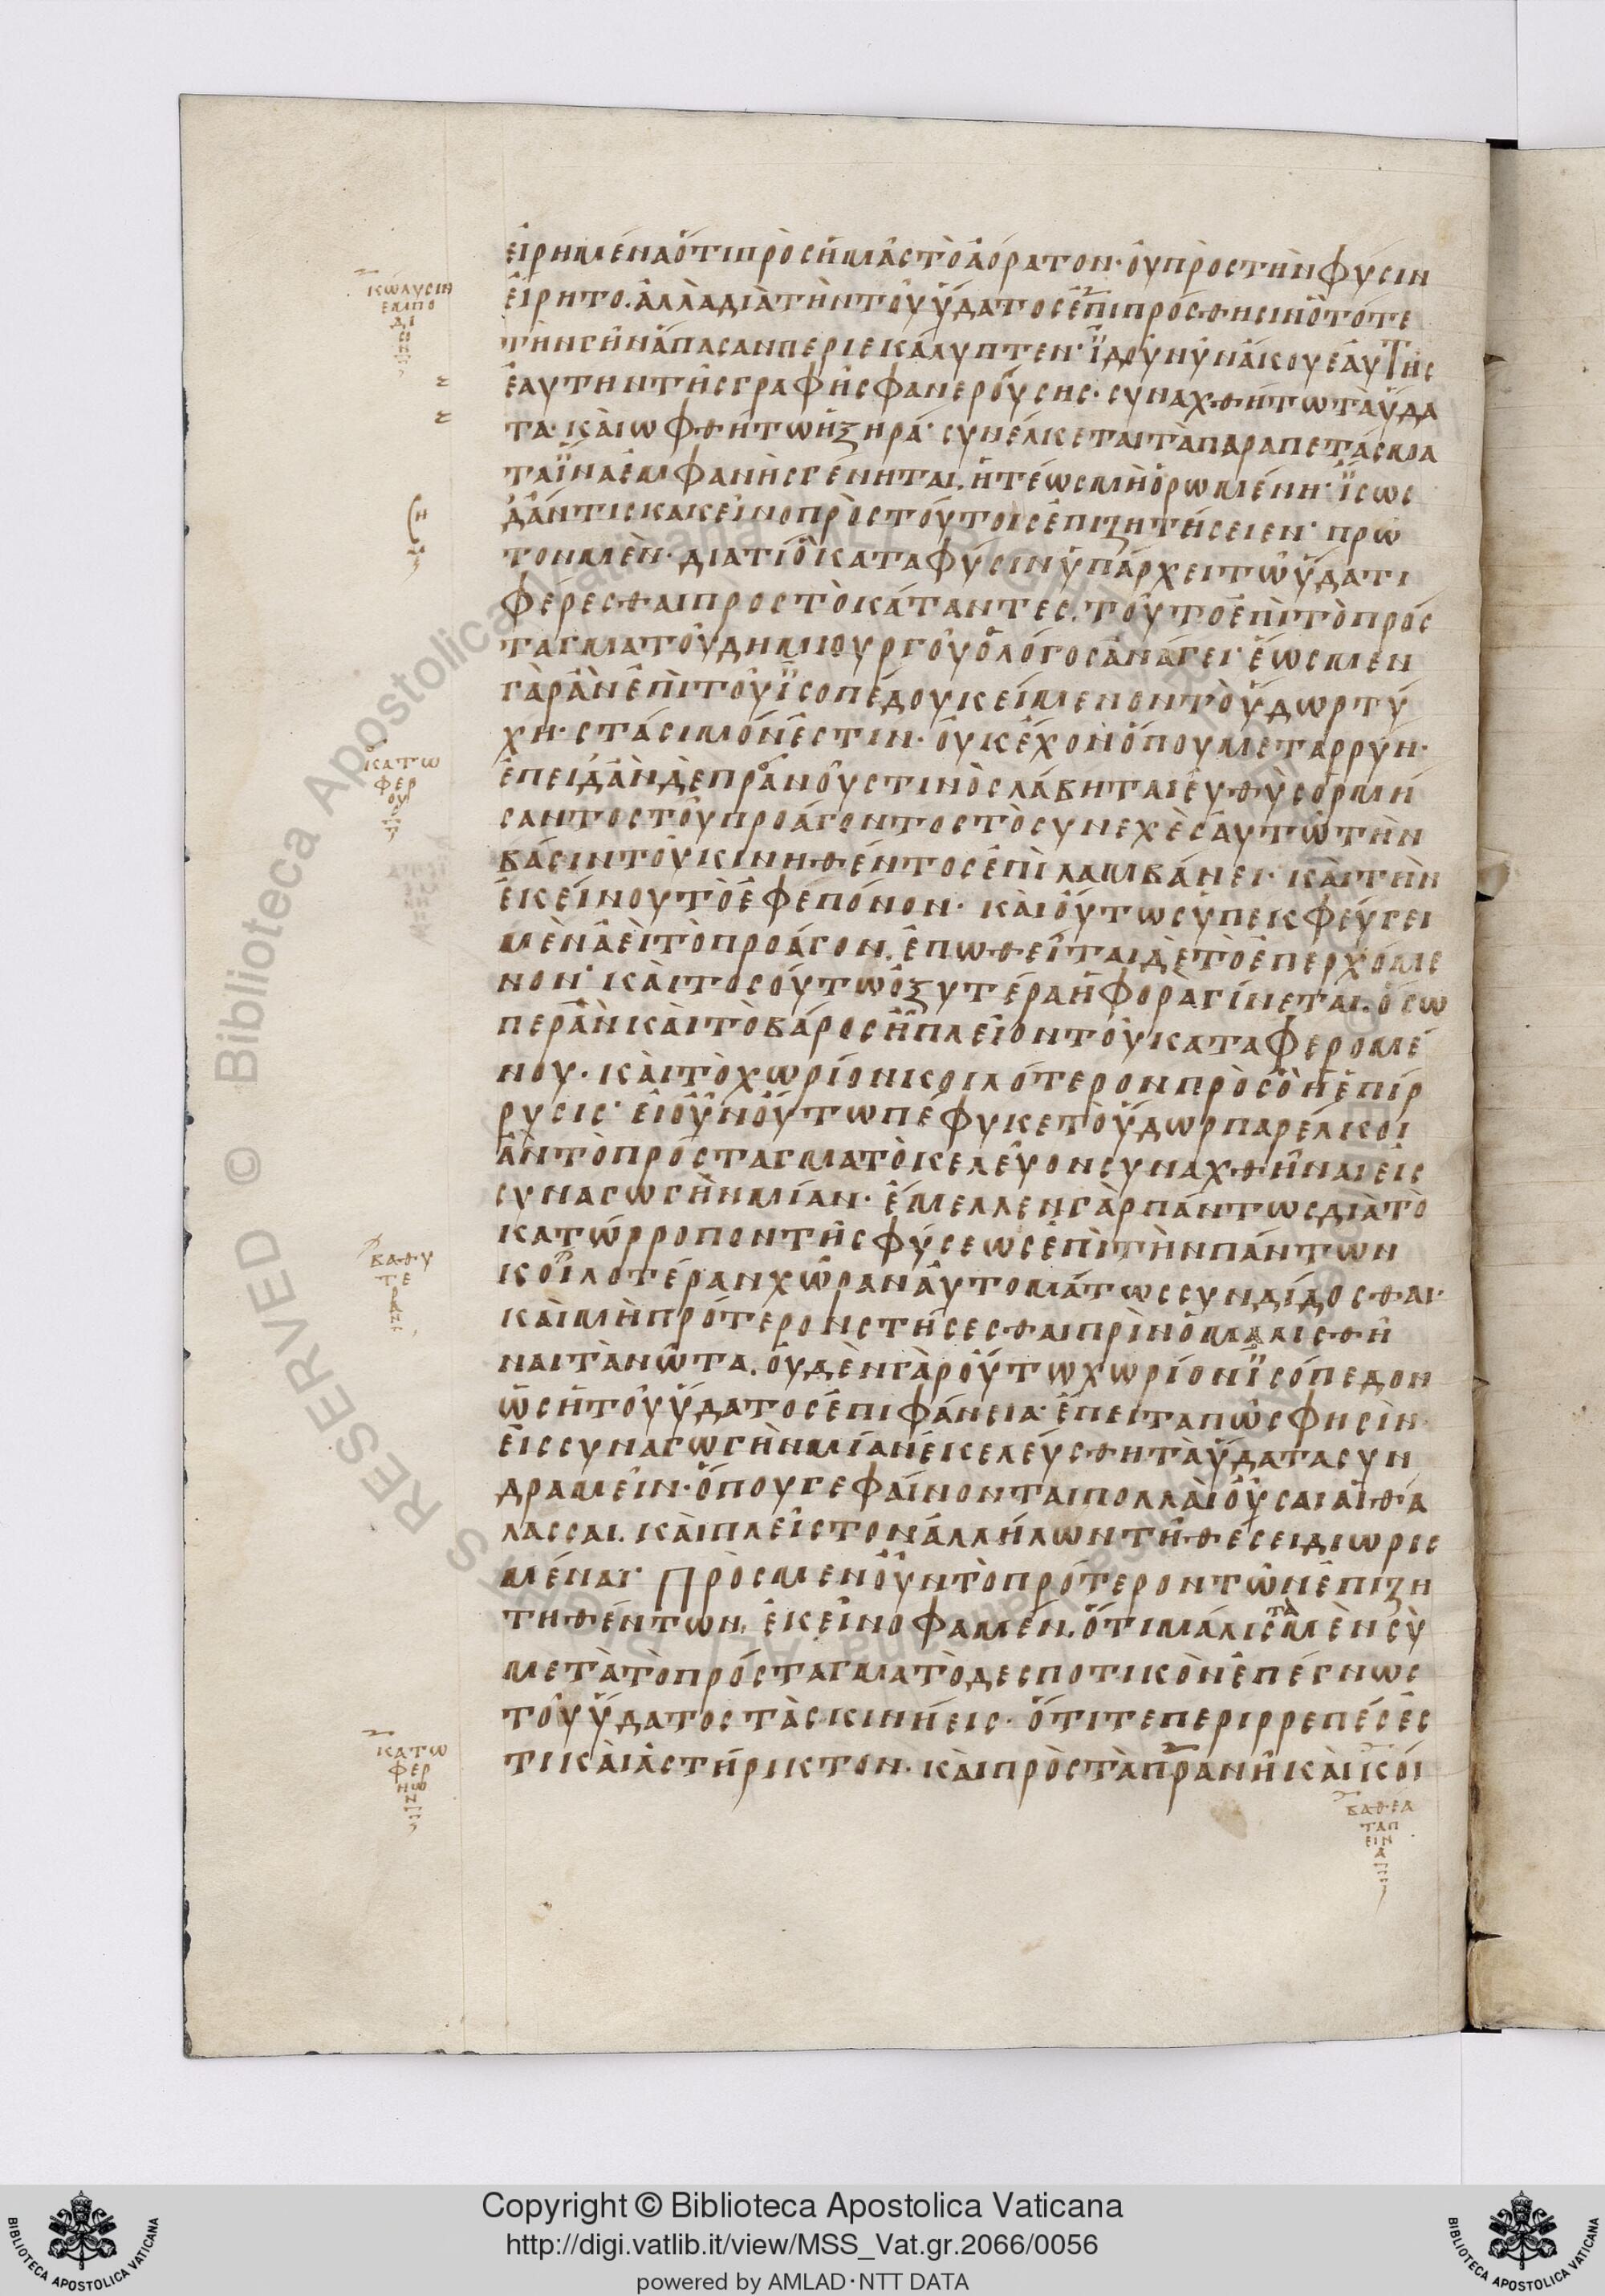 εἰρημένα ὅτι πρὸς ἡμᾶς τὸ ἀόρατον· οὐ πρὸς τὴν φύσιν
εἴρητο. ἀλλὰ διὰ τὴν τοῦ ὕδατος ἐπιπρόσθησιν ὃ τότε
τὴν γῆν ἅπασαν περιεκάλυπτεν· ἰδοὺ νῦν ἄκουε αὐτῆς
ἑαυτην τῆς γραφῆς φανερούσης· συναχθήτω τὰ ὕδα
τα· καὶ ὠφθήτω ἡ ξηρά· συνέλκεται τὰ παραπετάσμα
τα ἵνα ἐμφανὴς γένηται. ἡ τέως μὴ ὁρωμένη· ἴσως
δ' ἄν τις κακεῖνο πρὸς τούτοις ἐπιζητήσειεν· πρῶ
τον μὲν· διατί ὃ κατα φύσιν ὑπάρχει τῶ ὕδατι
φέρεσθαι πρὸς τὸ κάταντες. τοῦτο ἐπὶ τὸ πρόσ
ταγμα τοῦ δημιουργοῦ ὁ λόγος ἀνάγει· ἕως μὲν
γὰρ ἂν ἐπὶ τοῦ ἰσοπέδου κείμενον τὸ ὕδωρ τύ
χη· στάσιμόν ἐστιν· οὐκ ἔχον ὅπου μεταρρυῆ·
ἐπειδ' ἂν δὲ πρανοῦς τινὸς λάβηται εὐθὺς ὁρμή
σαντος τοῦ προάγοντος τὸ συνεχὲς αὐτῶ τὴν
βάσιν τοῦ κινηθέντος ἐπιλαμβάνει· καὶ τὴν
ἐκείνου τὸ ἐφεπόνον· καὶ οὕτως ὑπεκφεύγει
μὲν ἀεὶ τὸ προάγον. ἐπωθεῖται δὲ τὸ ἐπερχόμε
νον· καὶ τοσούτω ὀξυτέρα ἡ φορα γίνεται. ὅσω
περ ἂν καὶ τὸ βάρος ἦ πλεῖον τοῦ καταφερομέ
νου· καὶ τὸ χωρίον κοιλότερον πρὸς ὃ ἡ ἐπίρ
ρυσις· εἰ οὖν οὕτω πέφυκε τὸ ὕδωρ παρέλκοι
ἂν τὸ πρόσταγμα τὸ κελεῦον συναχθῆναι εἰς
συναγωγὴν μίαν· ἔμελλεν γὰρ πάντως διὰ τὸ
κατώρροπον τῆς φύσεως ἐπὶ τὴν πάντων
κοιλοτέραν χώραν αὐτομάτως συνδίδοσθαι·
καὶ μὴ πρότερον στήσεσθαι πρὶν ὁμαλισθῆ
ναι τὰ νῶτα. οὐδὲν γὰρ οὕτω χωρίον ἰσόπεδον
ὡς ἡ τοῦ ὕδατος ἐπιφάνεια· ἔπειτα πῶς φησὶν·
εἰς συναγωγὴν μίαν ἐκελεύσθη τὰ ὕδατα συν
δραμεῖν· ὅπου γε φαίνονται πολλαὶ οὖσαι αἱ θά
λασσαι. καὶ πλεῖστον ἀλλήλων τῆ θέσει διωρισ
μέναι· Πρὸς μὲν οὖν τὸ πρότερον τῶν ἐπιζη
τηθέντων, ἐκεῖνο φαμέν. ὅτι μάλιστα μὲν σὺ
μετὰ τὸ πρόσταγμα τὸ δεσποτικὸν ἐπέγνως
τοῦ ὕδατος τὰς κινήεις· ὅτι τε περιρρεπές ἐσ
τι καὶ ἀστήρικτον· καὶ πρὸς τὰ πρανῆ καὶ κοῖ
κώλυσιν
ἐμπο
δι
κατω
φερ
ου
βαθυ
τε
ραν
κατω
φερ
ηω
βαθέα
ταπ
ειν
α
Copyright © Biblioteca Apostolica Vaticana
http://digi.vatlib.it/view/MSS_Vat.gr.2066/0056
powered by AMLAD·NTT DATA
BIBLIOTECA APOSTOLICA VATICANA
BIBLIOTECA APOSTOLICA VATICANA